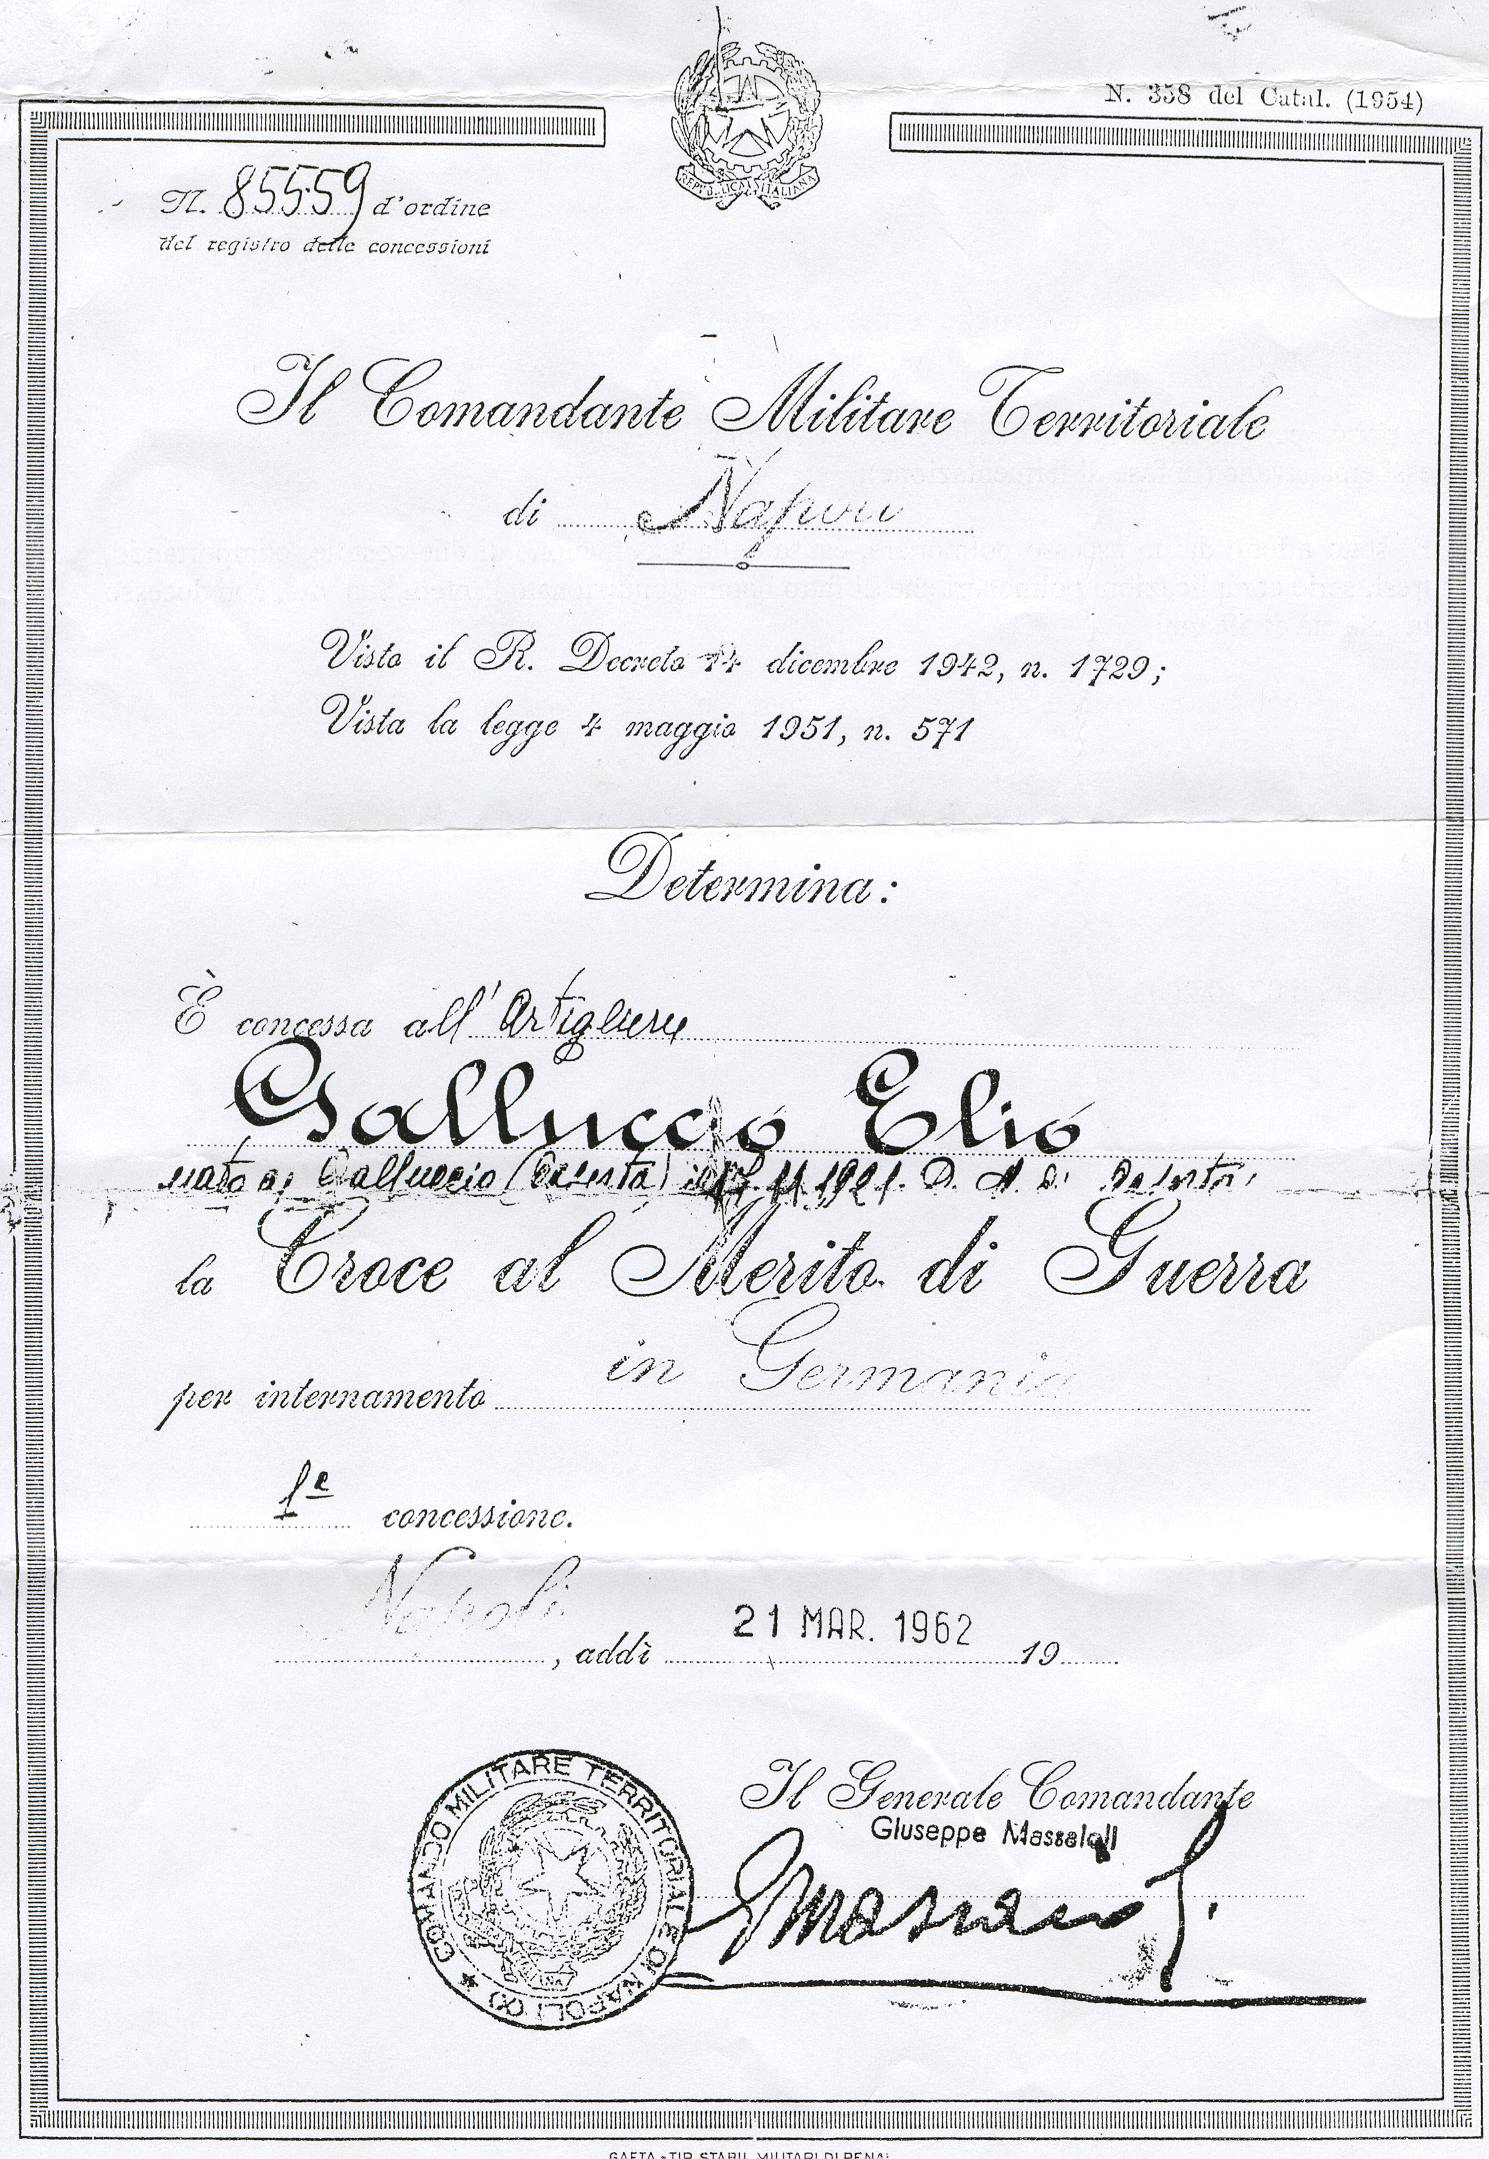 N. 358 del Catal. (1954)
REPUBBLICA ITALIANA
N. 85559 d'ordine
del registro delle concessioni
Il Comandante Militare Territoriale
di Napoli
Visto il R. Decreto 14 dicembre 1942, n. 1729;
Vista la legge 4 maggio 1951, n. 571
Determina:
È concessa all'Artigliere
Galluccio Elio
nato a Galluccio (Caserta) il 17.11.1921. D. M. di Caserta
la Croce al Merito di Guerra
per internamento in Germania
1ª concessione.
Napoli, addì 21 MAR. 1962 19
Il Generale Comandante
Giuseppe
COMANDO MILITARE TERRITORIALE DI NAPOLI
GAETA - TIP. STABIL. MILITARI DI PENA